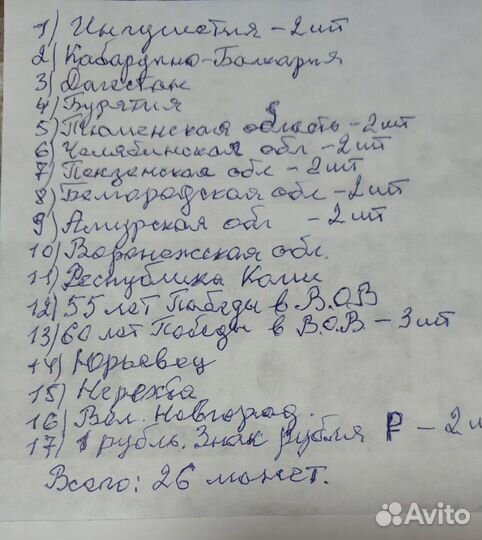 1) Ингушетия - 2 шт
2) Кабардино-Балкария
3) Дагестан
4) Бурятия
5) Тюменская область - 2 шт
6) Челябинская обл - 2 шт
7) Пензенская обл - 2 шт
8) Белгородская обл - 2 шт
9) Амурская обл - 2 шт
10) Воронежская обл.
11) Республика Коми
12) 55 лет Победы в В.О.В
13) 60 лет Победы в В.О.В - 3 шт
14) Юрьевец
15) Нерехта
16) Вел. Новгород.
17) 1 рубль. Знак рубля ₽ - 2 ш
Всего: 26 монет.
Avito